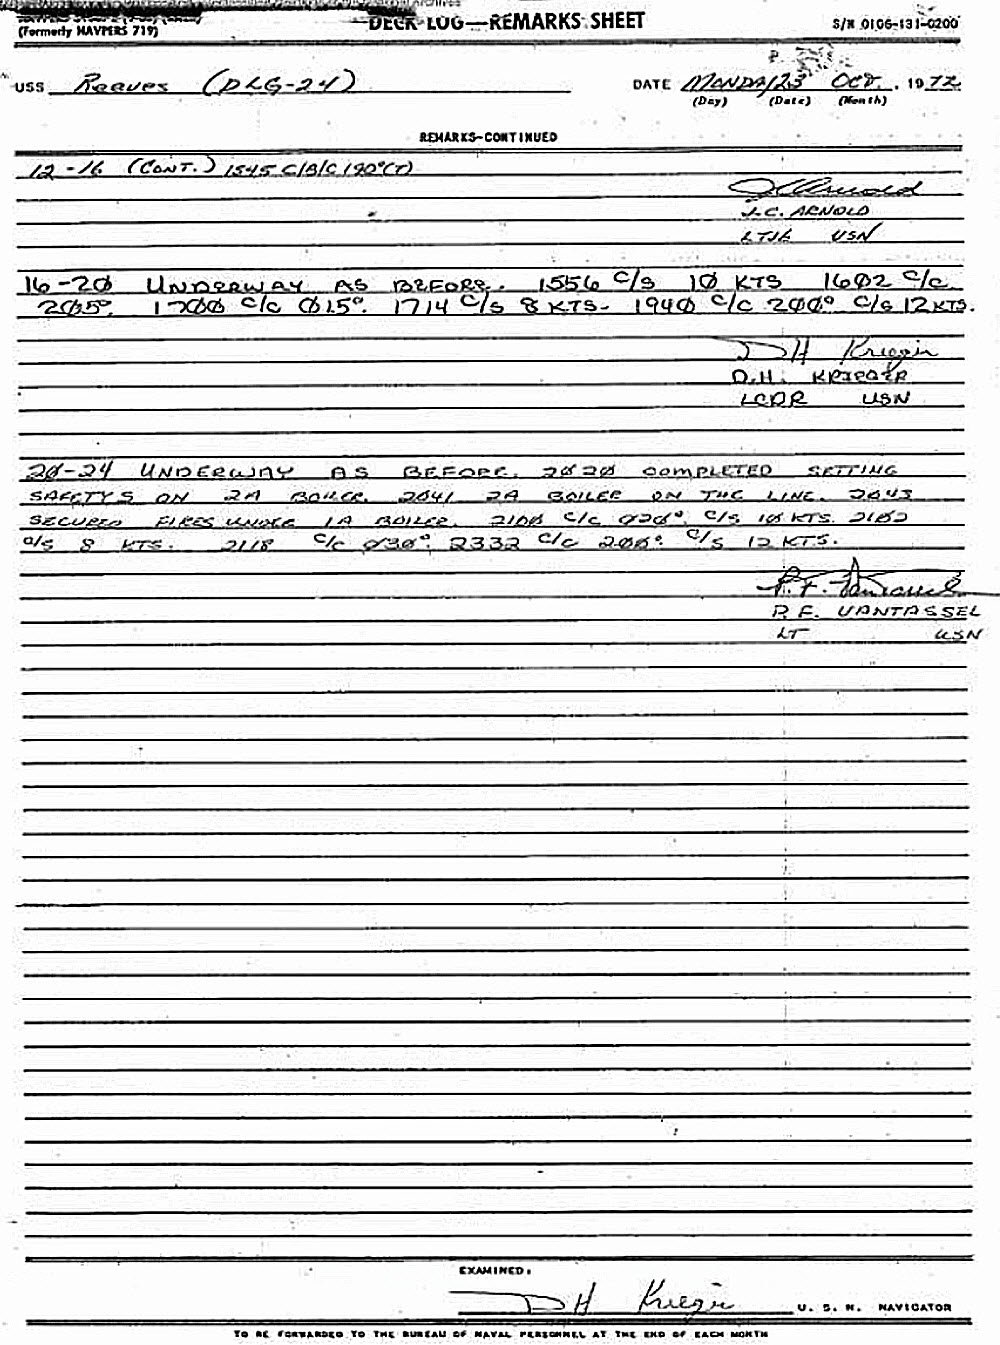 (Formerly NAVPERS 719)
DECK LOG—REMARKS SHEET
S/N 0106-131-0200
USS Reeves (DLG-24)
DATE MONDAY 23 OCT. , 19 72
(Day) (Date) (Month)
REMARKS-CONTINUED
12-16 (CONT.) 1545 C/B/C 190°(T)
J.C. Arnold
J.C. ARNOLD
LTJG USN
16-20 UNDERWAY AS BEFORE. 1556 C/S 10 KTS 1602 C/C
205°. 1700 C/C 015°. 1714 C/S 8 KTS. 1940 C/C 200° C/S 12 KTS.
DH Krieger
D.H. KRIEGER
LCDR USN
20-24 UNDERWAY AS BEFORE. 2020 COMPLETED SETTING
SAFETYS ON 2A BOILER. 2041 2A BOILER ON THE LINE. 2043
SECURED FIRES UNDER 1A BOILER. 2100 C/C 020°. C/S 10 KTS. 2102
C/S 8 KTS. 2118 C/C 030°. 2332 C/C 200°. C/S 12 KTS.
R.F. Vantassel
R.F. VANTASSEL
LT USN
EXAMINED:
DH Krieger U. S. N. NAVIGATOR
TO BE FORWARDED TO THE BUREAU OF NAVAL PERSONNEL AT THE END OF EACH MONTH